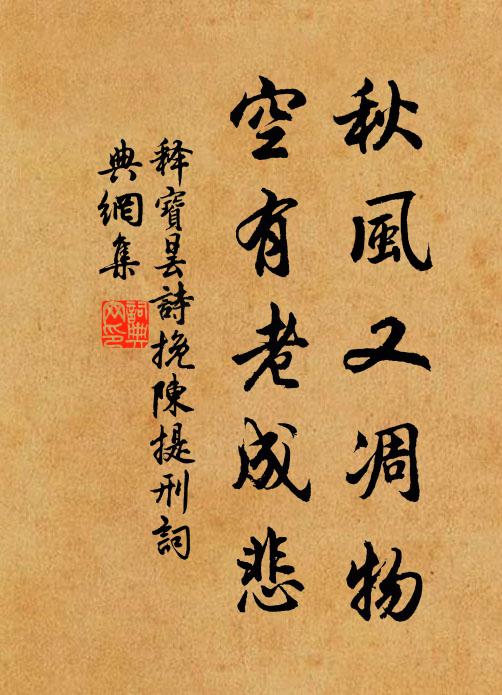 秋風又凋物
空有老成悲
釋寶曇詩挽陳提刑詞
典網集
詞典網印